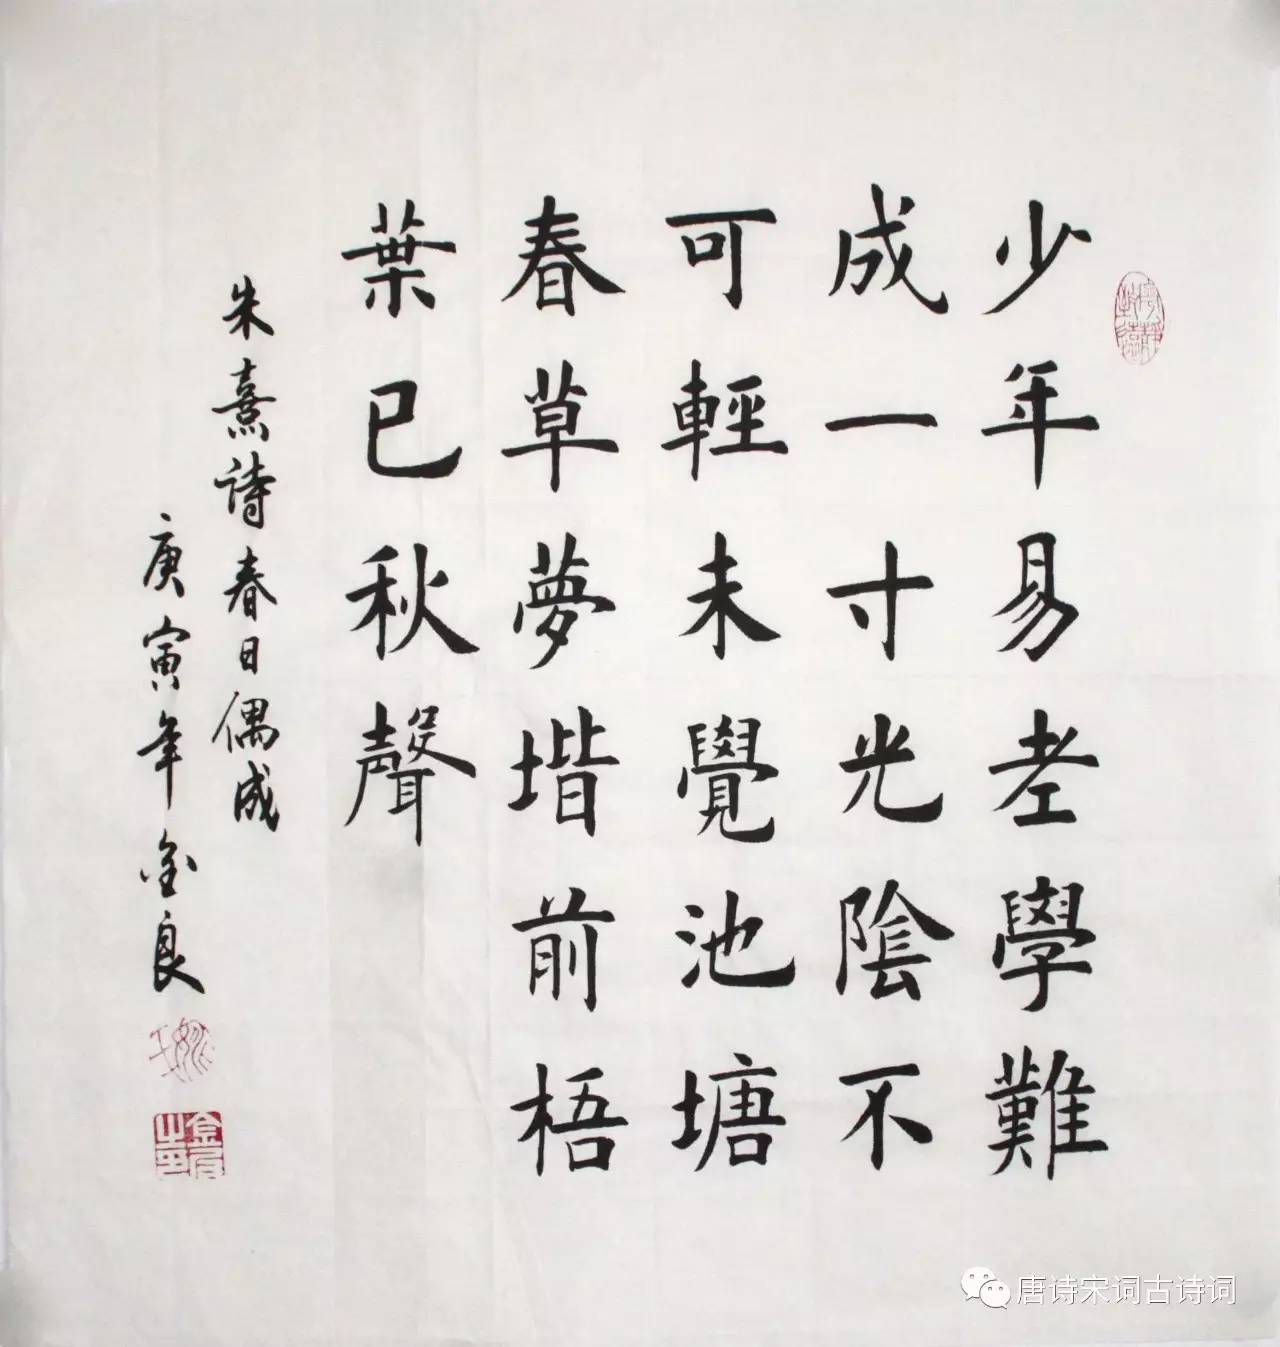 少年易老學難
成一寸光陰不
可輕未覺池塘
春草夢堦前梧
葉已秋聲
朱熹诗春日偶成
庚寅年金良
金良之印
唐诗宋词古诗词